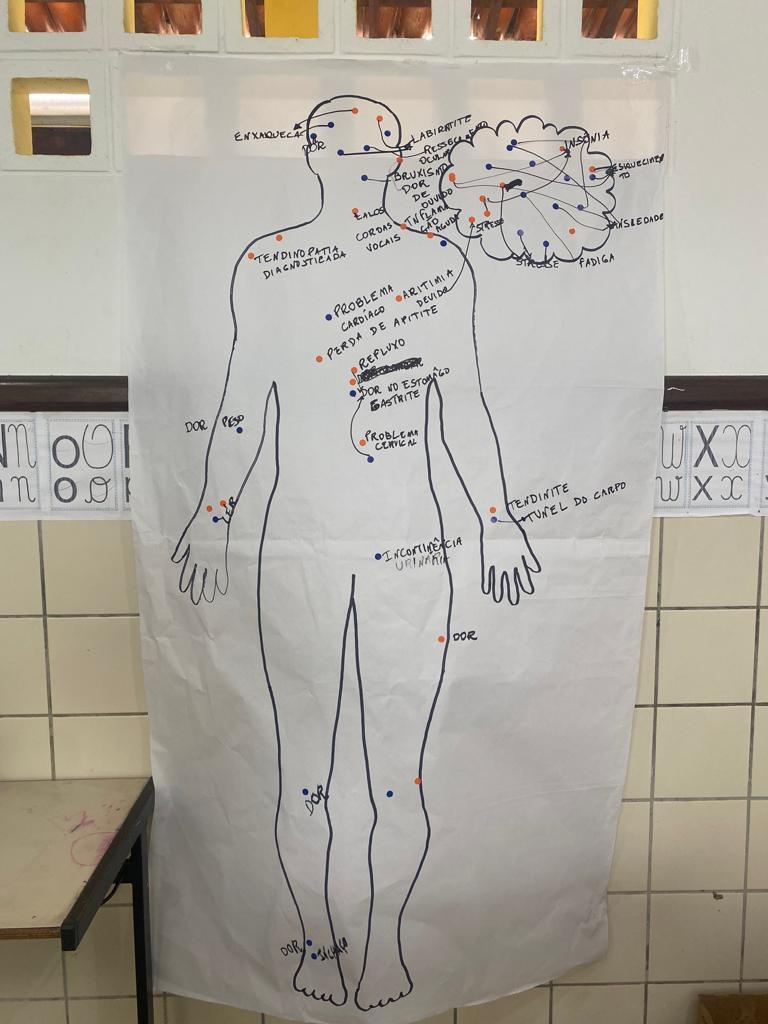 ENXAQUECA
DOR
LABIRINTITE
RESSECAMENTO
OCULAR
BRUXISMO
DOR
DE
OUVIDO
INFLAMA
ÇÃO
AGUDA
CALOS
CORDAS
VOCAIS
INSÔNIA
ESQUECIMEN
TO
ANSIEDADE
STRESSE
STRESSE
FADIGA
TENDINOPATIA
DIAGNOSTICADA
PROBLEMA
CARDÍACO
ARITIMIA
DEVIDO
PERDA DE APITITE
REFLUXO
DOR NO ESTOMÂGO
GASTRITE
PROBLEMA
CERVICAL
DOR PESO
LER
TENDINITE
TUNEL DO CARPO
INCONTINÊNCIA
URINÁRIA
DOR
DOR
DOR
INCHAÇO
n O O
n o o
W X X
w x x